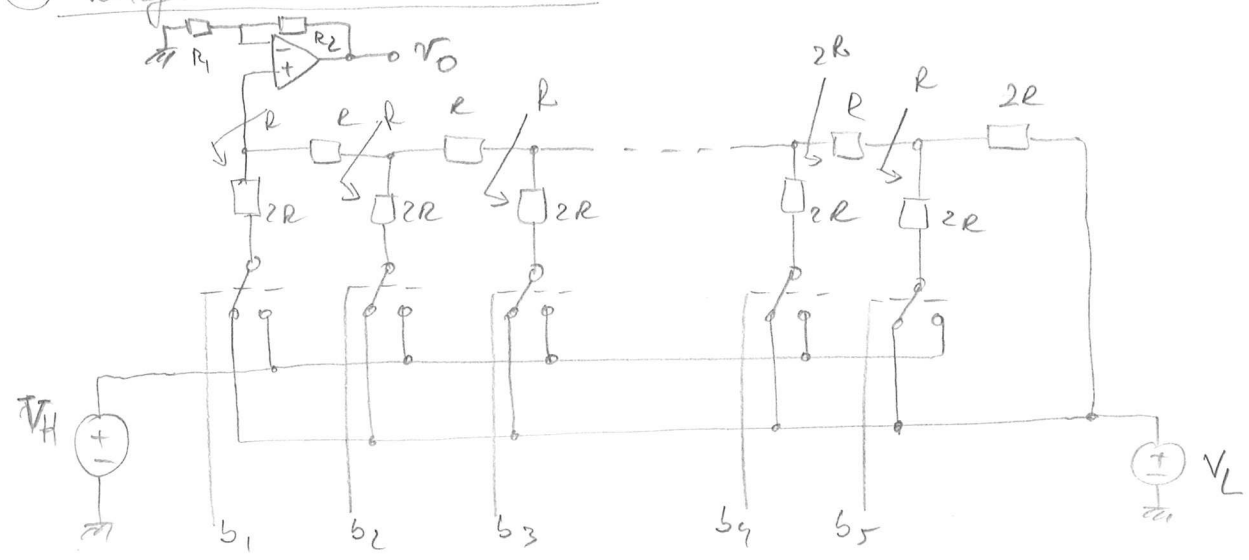 R1 R2 VO
2R
R R R R R R R 2R
2R 2R 2R 2R 2R
VH
VL
b1 b2 b3 b4 b5